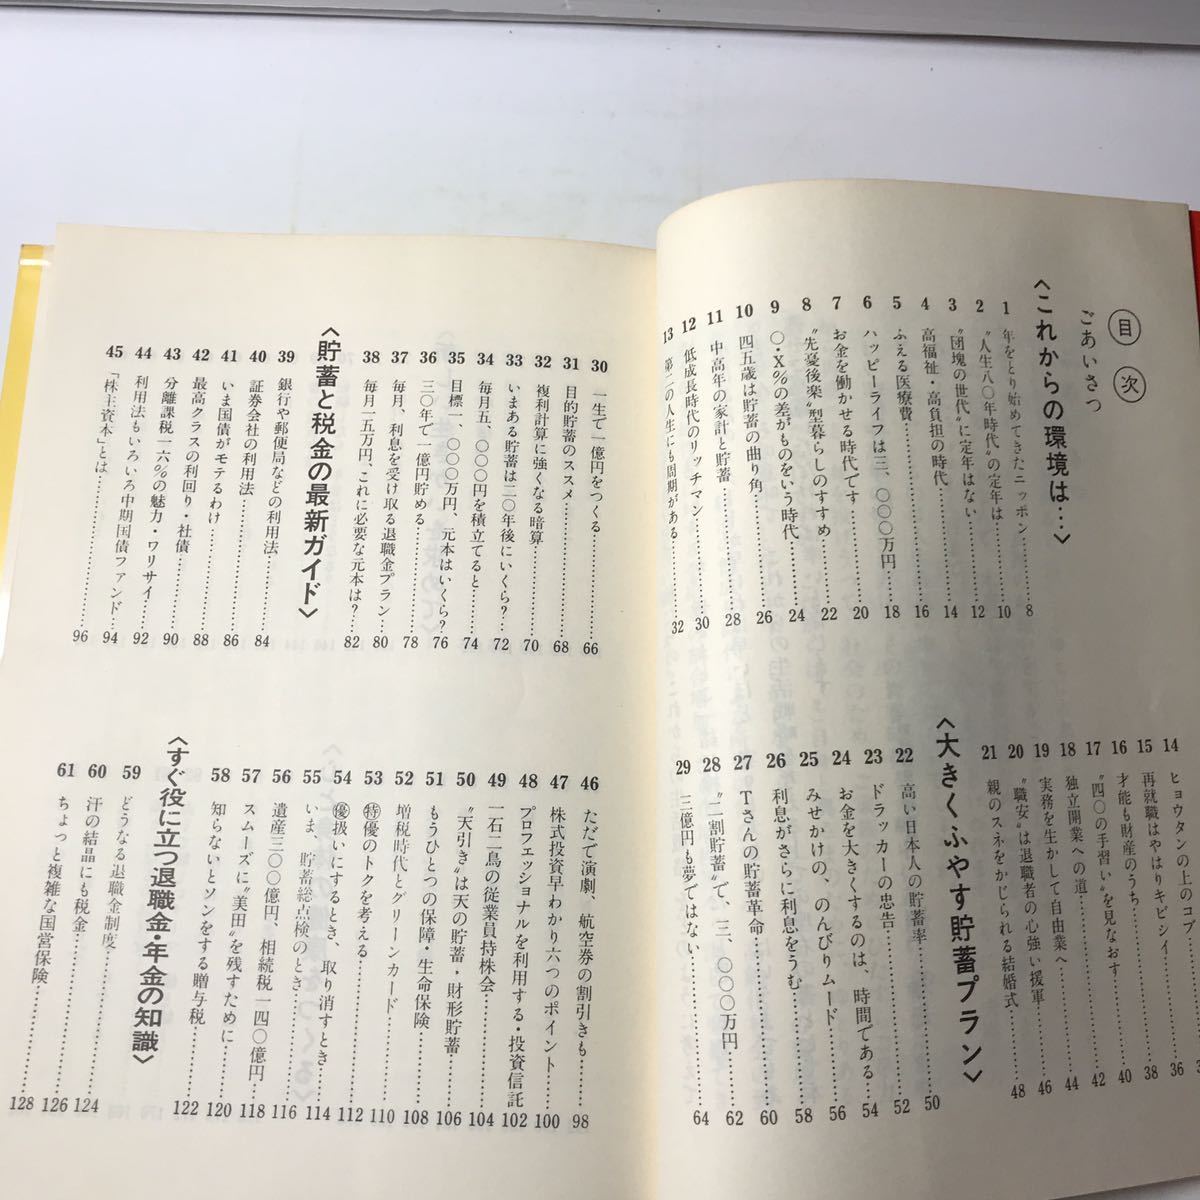 目次
ごあいさつ
〈これからの環境は…〉
1 年をとり始めてきたニッポン……8
2 〝人生八〇年時代〟の定年は……10
3 〝団塊の世代〟に定年はない……12
4 高福祉・高負担の時代……14
5 ふえる医療費……16
6 ハッピーライフは三、〇〇〇万円……18
7 お金を働かせる時代です……20
8 〝先憂後楽〟型暮らしのすすめ……22
9 〇・X%の差がものをいう時代……24
10 四五歳は貯蓄の曲り角……26
11 中高年の家計と貯蓄……28
12 低成長時代のリッチマン……30
13 第二の人生にも周期がある……32
14 ヒョウタンの上のコブ
15 再就職はやはりキビシイ……36
16 才能も財産のうち……38
17 〝四〇の手習い〟を見なおす……40
18 独立開業への道……42
19 実務を生かして自由業へ……44
20 〝職安〟は退職者の心強い援軍……46
21 親のスネをかじられる結婚式……48
〈大きくふやす貯蓄プラン〉
22 高い日本人の貯蓄率……50
23 ドラッカーの忠告……52
24 お金を大きくするのは、時間である……54
25 みせかけの、のんびりムード……56
26 利息がさらに利息をうむ……58
27 Tさんの貯蓄革命……60
28 〝二割貯蓄〟で、三、〇〇〇万円……62
29 三億円も夢ではない……64
30 一生で一億円をつくる……66
31 目的貯蓄のススメ……68
32 複利計算に強くなる暗算……70
33 いまある貯蓄は二〇年後にいくら?……72
34 毎月五、〇〇〇円を積立てると……74
35 目標一、〇〇〇万円、元本はいくら?……76
36 三〇年で一億円貯める……78
37 毎月、利息を受け取る退職金プラン……80
38 毎月一五万円、これに必要な元本は?……82
〈貯蓄と税金の最新ガイド〉
39 銀行や郵便局などの利用法……84
40 証券会社の利用法……86
41 いま国債がモテるわけ……88
42 最高クラスの利回り・社債……90
43 分離課税一六%の魅力・ワリサイ……92
44 利用法もいろいろ中期国債ファンド……94
45 「株主資本」とは……96
46 ただで演劇、航空券の割引きも……98
47 株式投資早わかり六つのポイント……100
48 プロフェッショナルを利用する・投資信託……102
49 一石二鳥の従業員持株会……104
50 〝天引き〟は天の貯蓄・財形貯蓄……106
51 もうひとつの保障・生命保険……108
52 増税時代とグリーンカード……110
53 ㊕優のトクを考える……112
54 ㊝扱いにするとき、取り消すとき……114
55 いま、貯蓄総点検のとき……116
56 遺産三〇〇億円、相続税一四〇億円……118
57 スムーズに〝美田〟を残すために……120
58 知らないとソンをする贈与税……122
〈すぐ役に立つ退職金・年金の知識〉
59 どうなる退職金制度……124
60 汗の結晶にも税金……126
61 ちょっと複雑な国営保険……128